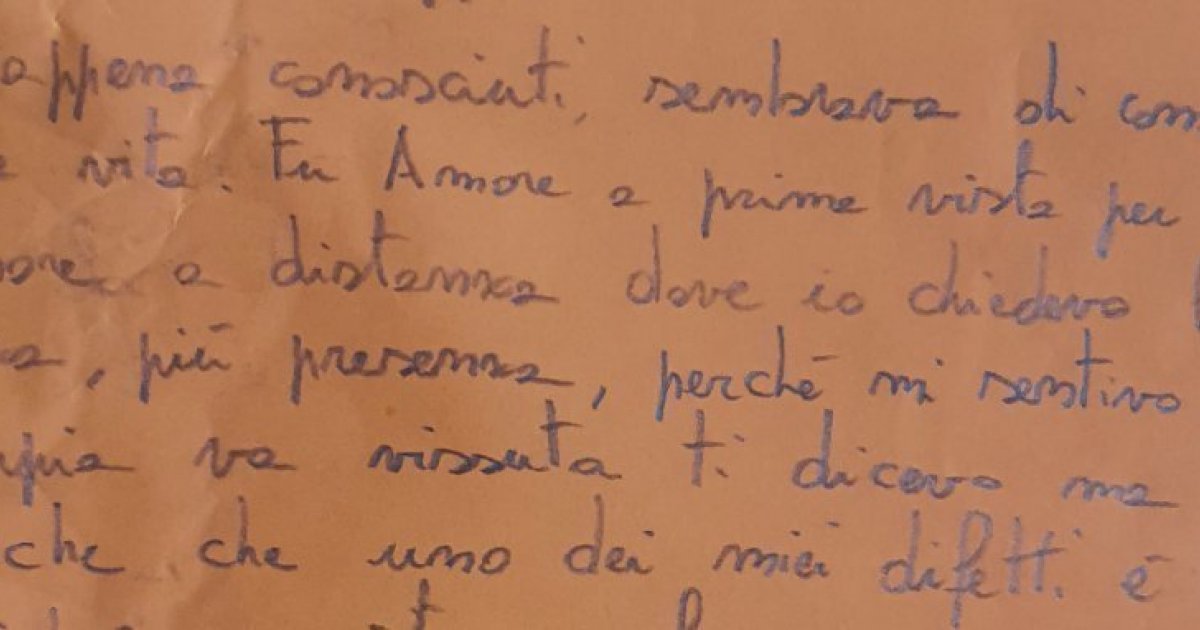 appena conosciuti, sembrava di con
e vita. Fu Amore a prima vista per
ore a distanza dove io chiedevo
za, più presenza, perché mi sentivo
ppia va vissuta ti dicevo ma
che che uno dei miei difetti è